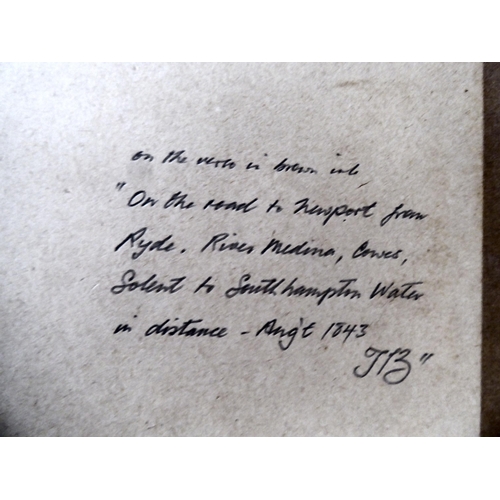 on the verso in brown ink,
"On the road to Newport from
Ryde. River Medina, Cowes,
Solent to Southhampton Water
in distance - Aug't 1843
JB"